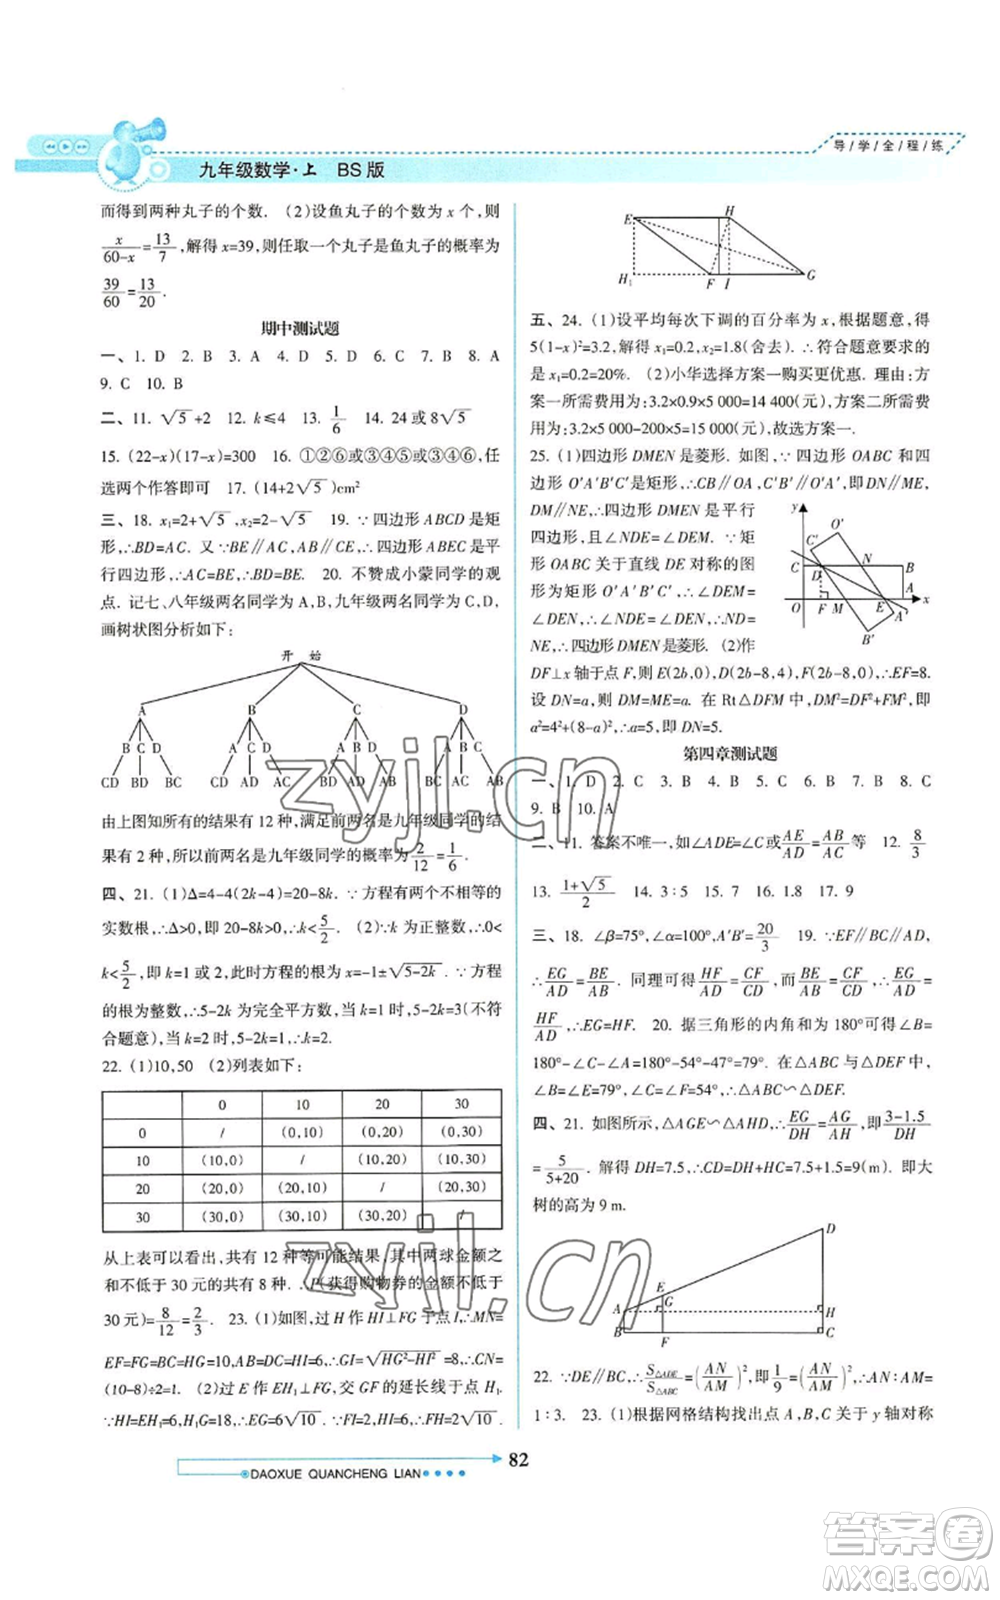 导/学/全/程/练
九年级数学·上 BS版
而得到两种丸子的个数. (2)设鱼丸子的个数为 x 个,则
x/(60-x)=13/7,解得 x=39,则任取一个丸子是鱼丸子的概率为
39/60=13/20.
期中测试题
一、1. D 2. B 3. A 4. D 5. D 6. C 7. B 8. A
9. C 10. B
二、11. √5+2 12. k≤4 13. 1/6 14. 24 或 8√5
15. (22-x)(17-x)=300 16. ①②⑥或③④⑤或③④⑥,任
选两个作答即可 17. (14+2√5)cm²
三、18. x₁=2+√5,x₂=2-√5 19. ∵四边形 ABCD 是矩
形,∴BD=AC. 又∵BE∥AC,AB∥CE,∴四边形 ABEC 是
平行四边形,∴AC=BE,∴BD=BE. 20. 不赞成小蒙同学的观
点. 记七、八年级两名同学为 A,B,九年级两名同学为 C,D,
画树状图分析如下:
开 始
A B C D
B C D A C D A B D A B C
CD BD BC CD AD AC BD AD AB BC AC AB
由上图知所有的结果有 12 种,满足前两名是九年级同学的结
果有 2 种,所以前两名是九年级同学的概率为 2/12=1/6.
四、21. (1)Δ=4-4(2k-4)=20-8k. ∵方程有两个不相等的
实数根,∴Δ>0,即 20-8k>0,∴k<5/2. (2)∵k 为正整数,∴0<
k<5/2,即 k=1 或 2,此时方程的根为 x=-1±√(5-2k). ∵方程
的根为整数,∴5-2k 为完全平方数,当 k=1 时,5-2k=3(不符
合题意),当 k=2 时,5-2k=1,∴k=2.
22. (1)10,50 (2)列表如下:
0 10 20 30
0 / (0,10) (0,20) (0,30)
10 (10,0) / (10,20) (10,30)
20 (20,0) (20,10) / (20,30)
30 (30,0) (30,10) (30,20) /
从上表可以看出,共有 12 种等可能结果,其中两球金额之
和不低于 30 元的共有 8 种. ∴P(获得购物券的金额不低于
30 元)=8/12=2/3. 23. (1)如图,过 H 作 HI⊥FG 于点 I,∴MN=
EF=FG=HG=10,BD=HI=6,∴GI=√(HG²-HI²)=8,∴CN=
(10-8)÷2=1. (2)过 E 作 EH₁⊥FI,交 GF 的延长线于点 H₁.
∵HI=EH₁=6,H₁G=18,∴EG=6√10. ∵FI=2,∴HF=2√10.
E H
H₁ F I G
五、24. (1)设平均每次下调的百分率为 x,根据题意,得
5(1-x)²=3.2,解得 x₁=0.2,x₂=1.8(舍去). ∴符合题意要求的
是 x₁=0.2=20%. (2)小华选择方案一购买更优惠. 理由:方
案一所需费用为:3.2×0.9×5 000=14 400(元),方案二所需费
用为:3.2×5 000-200×5=15 000(元),故选方案一.
25. (1)四边形 DMEN 是菱形. 如图,∵四边形 OABC 和四
边形 O′A′B′C′是矩形,∴CB∥OA,C′B′∥O′A′,即DN∥ME,
DM∥NE,∴四边形 DMEN 是平行
四边形,且∠NDE=∠DEM. ∵矩
形 OABC 关于直线 DE 对称的图
形为矩形 O′A′B′C′,∴∠DEM=
∠DEN,∴∠NDE=∠DEN,∴ND=
NE,∴四边形 DMEN 是菱形. (2)作
y C′ O′ C D N B O F M E A′ x B′
DF⊥x 轴于点 F,则 E(2b,0),D(2b-8,4),F(2b-8,0),∴EF=8.
设 DN=a,则 DM=ME=a. 在 Rt△DFM 中,DM²=DF²+FM²,即
a²=4²+(8-a)²,∴a=5,即 DN=5.
第四章测试题
一、1. D 2. C 3. B 4. B 5. C 6. B 7. B 8. C
9. B 10. A
二、11. 答案不唯一,如∠ADE=∠C或AE/AD=AB/AC等 12. 8/3
13. (1+√5)/2 14. 3∶5 15. 7 16. 1.8 17. 9
三、18. ∠β=75°,∠α=100°,A′B′=20/3 19. ∵EF∥BC∥AD,
∴EG/AD=BE/AB. 同理可得HF/AD=CF/CD,而BE/AB=CF/CD,∴EG/AD=
HF/AD,∴EG=HF. 20. 据三角形的内角和为 180°可得∠B=
180°-∠A-∠C=180°-54°-47°=79°. ∵在△ABC 与△DEF中,
∠B=∠E=79°,∠C=∠F=54°,∴△ABC∽△DEF.
四、21. 如图所示,△AGE∽△AHD,∴EG/DH=AG/AH,∴(3-1.5)/DH
=5/(5+20). 解得 DH=7.5,∴CD=DH+HC=7.5+1.5=9(m). 即大
树的高为 9 m.
D E A G H B F C
22. ∵DE∥BC,∴S△ADE/S△ABC=(AN/AM)²,即1/9=(AN/AM)²,∴AN∶AM=
1∶3. 23. (1)根据网格结构找出点 A,B,C 关于 y 轴对称
82
DAOXUE QUANCHENG LIAN
zyjl.cn
zyjl.cn
答案圈
MXQE.COM